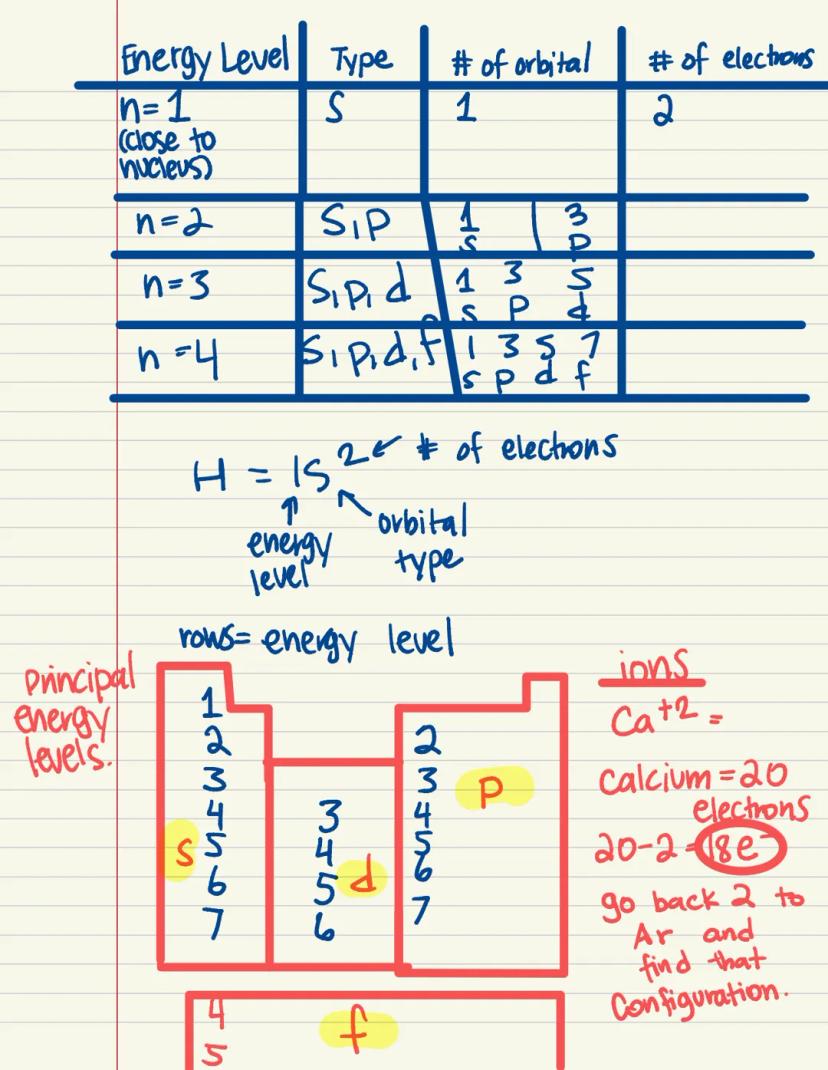 Energy Level Type # of orbital # of electrons
n=1 S 1 2
(close to
nucleus)
n=2 S, P 1 3
s p
n=3 S, P, d 1 3 5
s p d
n=4 S, P, d, f 1 3 5 7
s p d f
H = 1S² ← # of electrons
energy
level
orbital
type
rows= energy level
principal
energy
levels.
1
2
3
4
5
6
7
S
3
4
5
6
d
2
3
4
5
6
7
P
4
5
f
ions
Ca⁺² =
Calcium = 20
electrons
20-2=18e⁻
go back 2 to
Ar and
find that
Configuration.